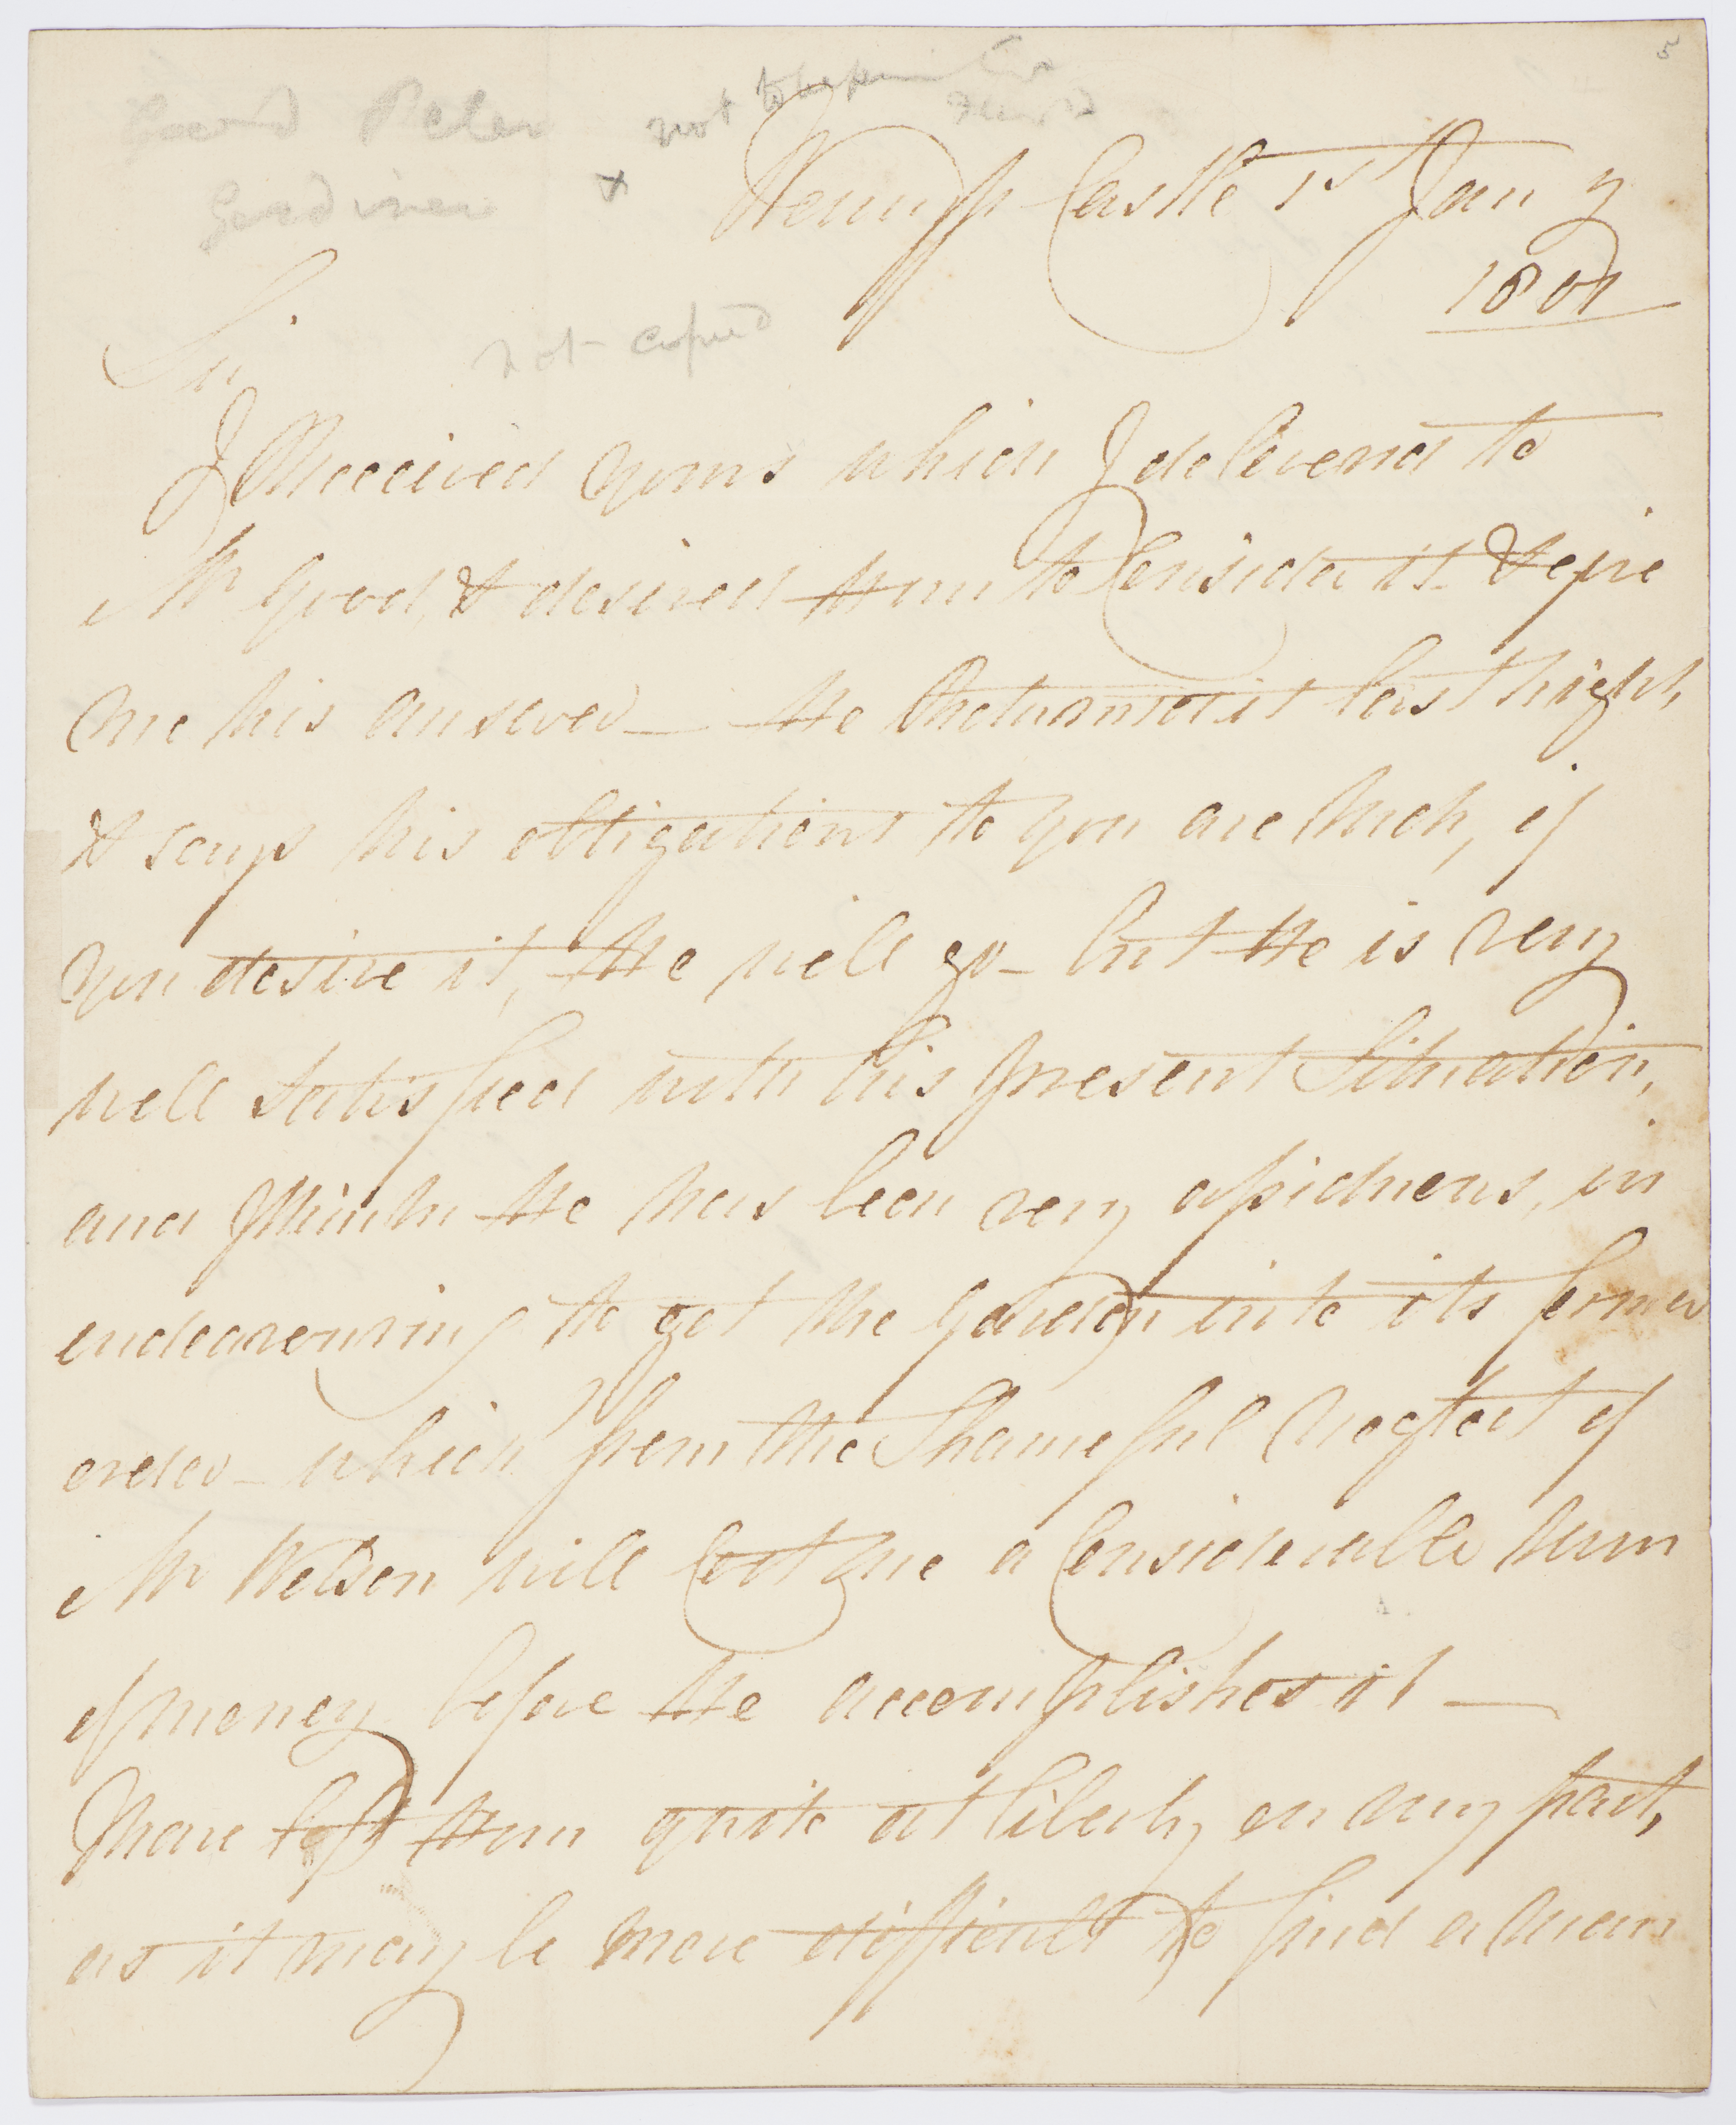 5
Good Peter not to be
Gardiner x
Wemyss Castle 1st Jany
1801
Sir
not copied
I Received yours which I delivered to
Mr Good, & desired Him to Consider it & give
me his answer — He Returned it last night,
& says his obligations to you are Much, if
you desire it, He will go – but He is very
well satisfied with his present Situation,
and I think He has been very assiduous, in
endeavouring to get the Garden into its former
order – which from the Shameful Neglect of
Mr Watson will Cost me a Considerable Sum
of money before He accomplishes it —
I have left Him quite at liberty on my part,
as it may be more difficult to find a man